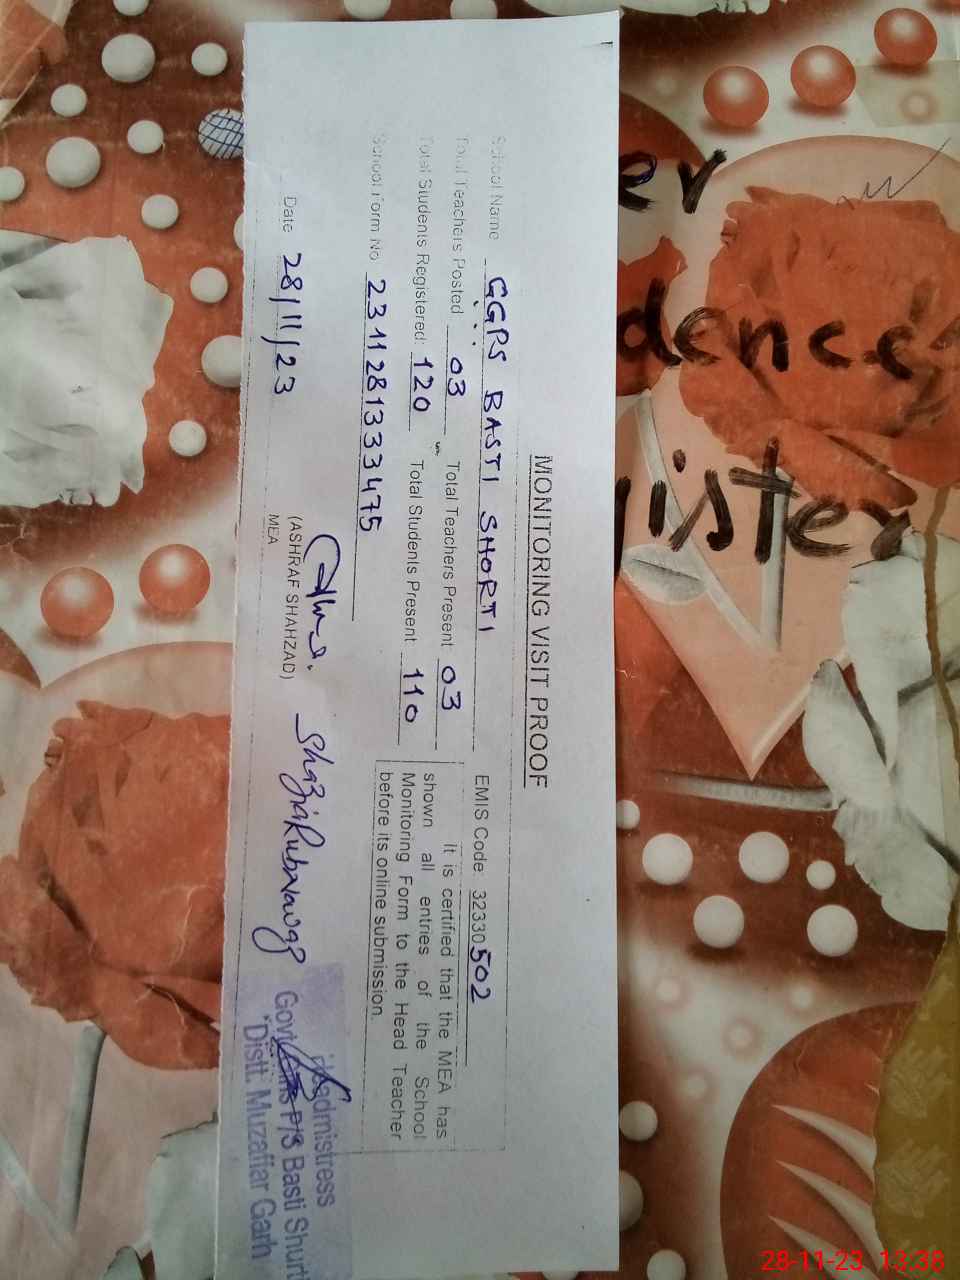 MONITORING VISIT PROOF
School Name GGPS BASTI SHORTI
EMIS Code: 32330502
Total Teachers Posted 03 Total Teachers Present 03
Total Students Registered: 120 Total Students Present 110
School Form No 2311281333475
It is certified that the MEA has
shown all entries of the School
Monitoring Form to the Head Teacher
before its online submission.
Date 28/11/23
(ASHRAF SHAHZAD)
MEA
Headmistress
Govt P/S Basti Shurti
Distt. Muzaffar Garh
28-11-23 13:38